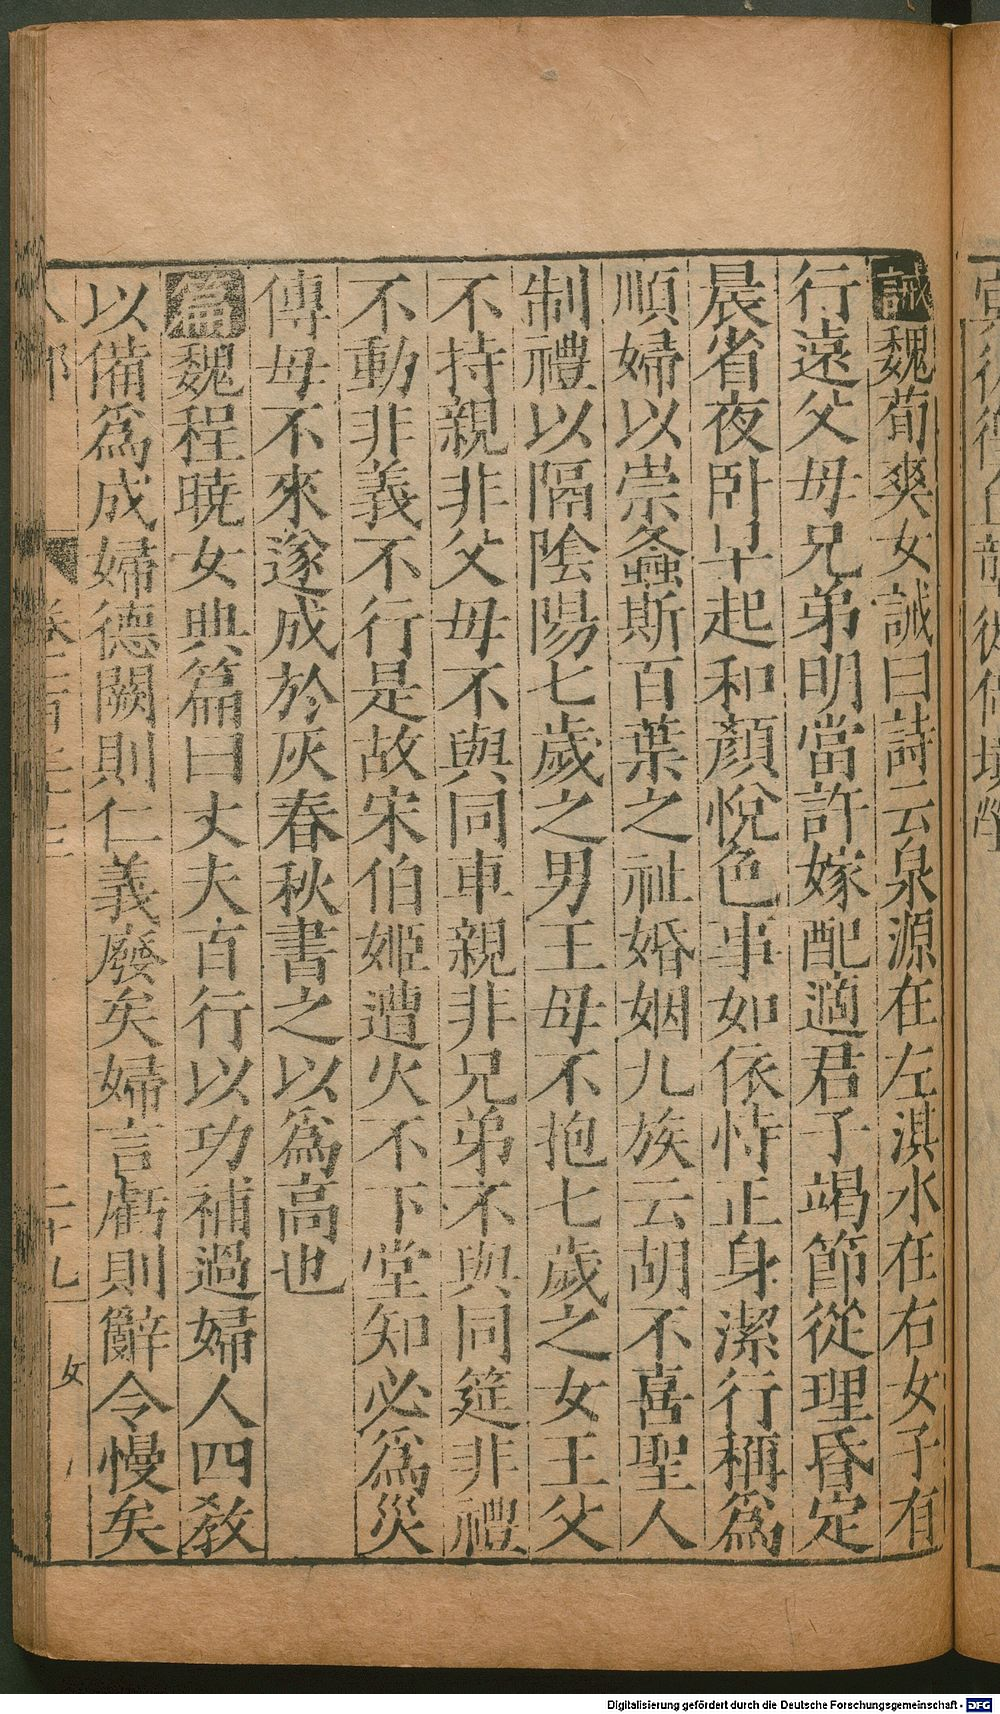 誡魏荀爽女誡曰詩云泉源在左淇水在右女子有
行遠父母兄弟明當許嫁配適君子竭節從理昏定
晨省夜卧早起和顏悅色事如依恃正身潔行稱為
順婦以崇螽斯百葉之祉婚姻九族云胡不喜聖人
制禮以隔陰陽七歲之男王母不抱七歲之女王父
不持親非父母不與同車親非兄弟不與同筵非禮
不動非義不行是故宋伯姬遭火不下堂知必為災
傅母不來遂成於灰春秋書之以為高也
篇魏程曉女典篇曰丈夫百行以功補過婦人四教
以備為成婦德闕則仁義廢矣婦言虧則辭令慢矣
人部 二十九 女
Digitalisierung gefördert durch die Deutsche Forschungsgemeinschaft - DFG